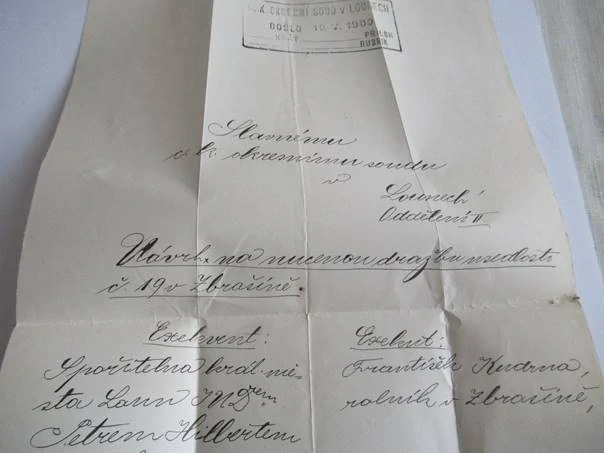 C. K. OKRESNÍ SOUD V LOUNECH
DOŠLO 10. V. 1900
KRÁT PŘÍLOH
RUBRIK
Slavnému
c. k. okresnímu soudu
v
Lounech
Oddělení II
Návrh na nucenou dražbu usedlosti
č. 19 v Zbrašíně.
Exekvent:
Spořitelna král. mě-
sta Loun JUDrem
Petrem Hilbertem
Exekut:
František Kudrna,
rolník v Zbrašíně,